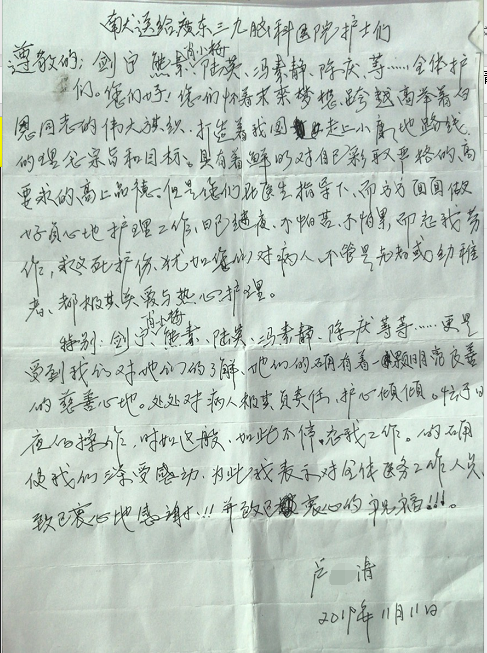 献送给广东三九脑科医院护士们
肖小梅
尊敬的:剑宇 熊素、陆英、冯素静、陈庆、等……全体护
们。您们好!您们怀着未来梦想跨越高举着白
恩同志的伟大旗织、打造着我国走上小康地路线
的理念宗旨和目标。具有着鲜明对自己彩取严格的高
要求的高上品德。但是您们在医生指导下、而方方面面做
好负心地护理工作、日已继夜、不怕苦、不怕累、而忘我劳
作,救死护伤、犹如您们对病人、不管是先者或幼雅
者、都极其关爱与热心护理。
肖小梅
特别:剑宇、熊素、陆英、冯素静、陈庆等等……更是
受到我们对她们的了解、她们的确有着一颗明亮良善
的慈善心地。处处对病人极其负责任、护心倾倾。忙于日
夜的操作,时如已般,如此不停。忘我工作。的确
使我们深受感动,为此我表示对全体医务工作人员、
致已衷心地感谢!!并致已衷心的祝福!!!。
清
2019年11月11日